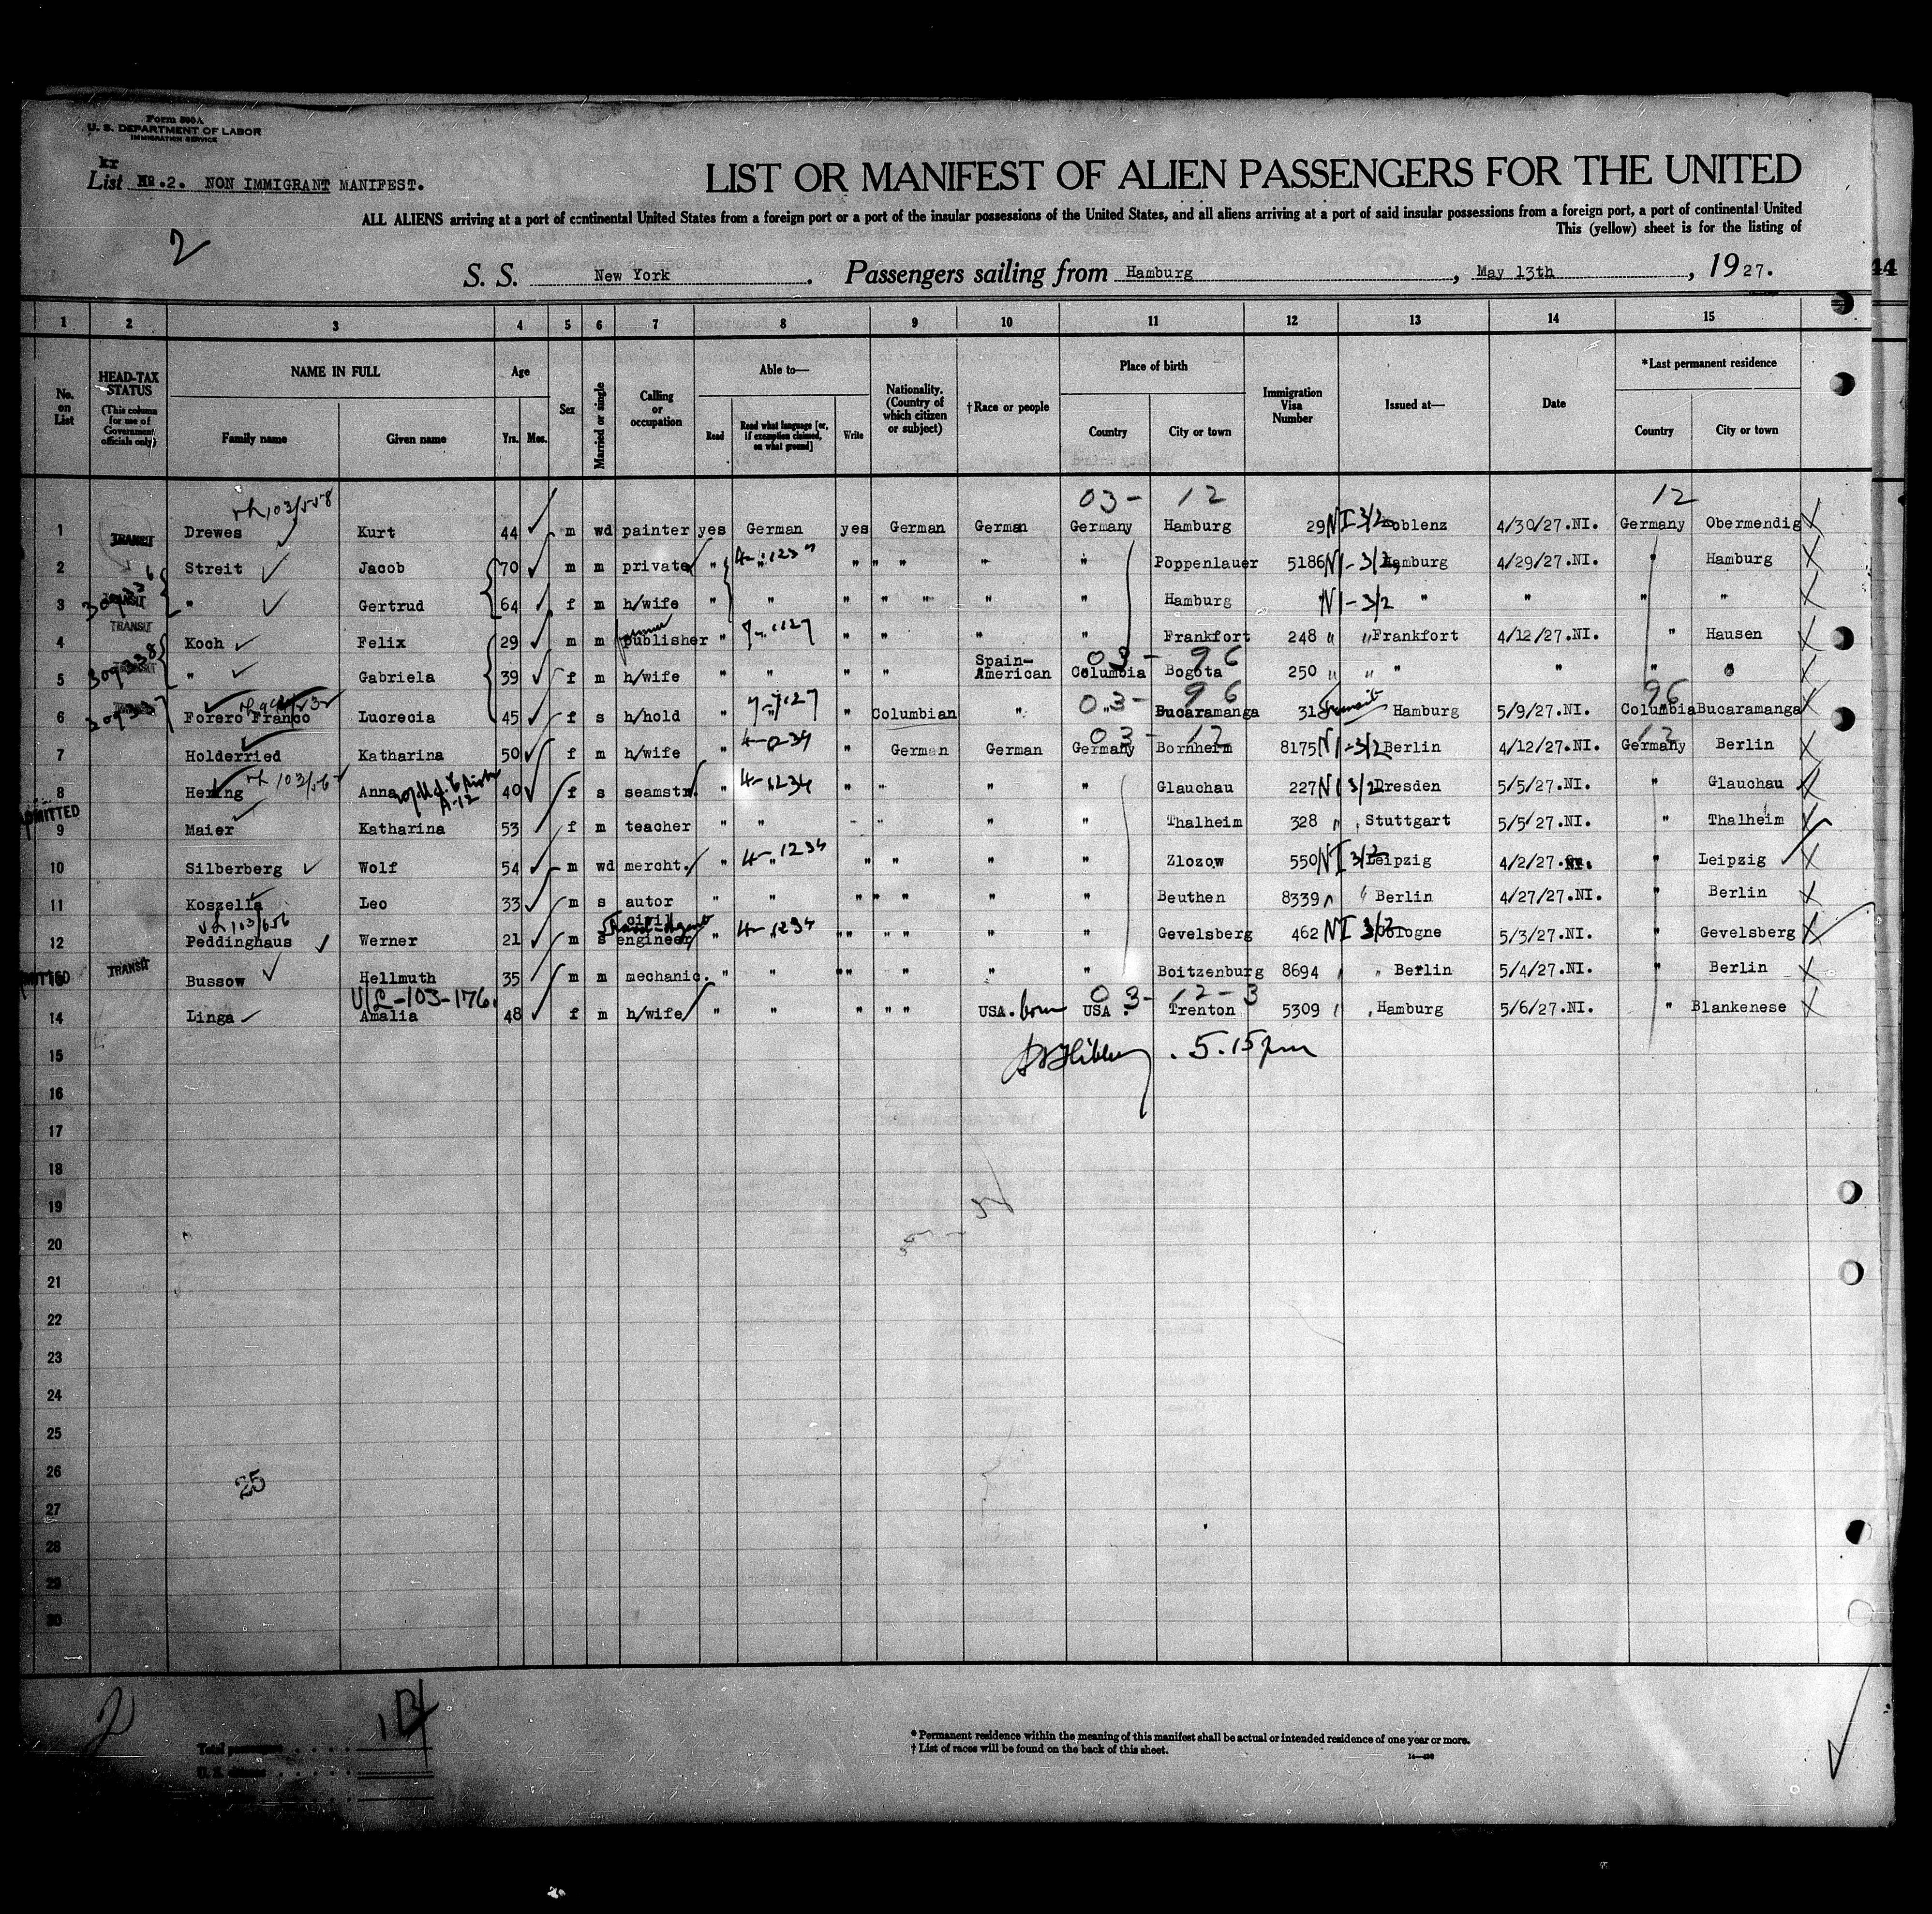 Form 500A
U. S. DEPARTMENT OF LABOR
IMMIGRATION SERVICE
kr
List No.2. NON IMMIGRANT MANIFEST.
LIST OR MANIFEST OF ALIEN PASSENGERS FOR THE UNITED
ALL ALIENS arriving at a port of continental United States from a foreign port or a port of the insular possessions of the United States, and all aliens arriving at a port of said insular possessions from a foreign port, a port of continental United
This (yellow) sheet is for the listing of
2
S. S. New York. Passengers sailing from Hamburg, May 13th, 1927.
44
1 2 3 4 5 6 7 8 9 10 11 12 13 14 15
No. on List
HEAD-TAX STATUS (This column for use of Government officials only)
NAME IN FULL
Family name Given name
Age
Yrs. Mos.
Sex
Married or single
Calling or occupation
Able to—
Read
Read what language [or, if exemption claimed, on what ground]
Write
Nationality. (Country of which citizen or subject)
†Race or people
Place of birth
Country City or town
Immigration Visa Number
Issued at—
Date
*Last permanent residence
Country City or town
103/558 03- 12 12
1 TRANSIT Drewes Kurt 44 m wd painter yes German yes German German Germany Hamburg 29 NI 3/2 Koblenz 4/30/27.NI. Germany Obermendig
2 Streit Jacob 70 m m private " " " " " " " Poppenlauer 5186 NI-3/2 Hamburg 4/29/27.NI. " Hamburg
3 TRANSIT " Gertrud 64 f m h/wife " " " " " " " Hamburg " NI-3/2 " " " "
4 TRANSIT Koch Felix 29 m m publisher " 7-1127 " " " " Frankfort 248 " " Frankfort 4/12/27.NI. " Hausen
309338 03- 96
5 TRANSIT " Gabriela 39 f m h/wife " " " " Spain-American Columbia Bogota 250 " " " " " "
309337 03- 96 96
6 TRANSIT Forero Franco Lucrecia 45 f s h/hold " " " Columbian " " Bucaramanga 318 Transit Hamburg 5/9/27.NI. Columbia Bucaramanga
03- 12 12
7 Holderried Katharina 50 f m h/wife " " German German Germany Bornheim 8175 NI-3/2 Berlin 4/12/27.NI. Germany Berlin
8 Hering Anna 40 f s seamstr. " 4-1234 " " " " Glauchau 227 NI 3/2 Dresden 5/5/27.NI. " Glauchau
ADMITTED
9 Maier Katharina 53 f m teacher " " " " " " Thalheim 328 " Stuttgart 5/5/27.NI. " Thalheim
10 Silberberg Wolf 54 m wd mercht. " 4-1234 " " " " Zlozow 550 NI 3/2 Leipzig 4/2/27.NI. " Leipzig
11 Koszella Leo 33 m s autor " " " " " " " Beuthen 8339 " Berlin 4/27/27.NI. " Berlin
103/656
12 Peddinghaus Werner 21 m s civil engineer " 4-1234 " " " " " " Gevelsberg 462 NI 3/2 Cologne 5/3/27.NI. " Gevelsberg
TRANSIT Bussow Hellmuth 35 m m mechanic. " " " " " " " Boitzenburg 8694 " Berlin 5/4/27.NI. " Berlin
V/L-103-176. 03- 12-3
14 Linga Amalia 48 f m h/wife " " " " " USA. born USA. Trenton 5309 " Hamburg 5/6/27.NI. " Blankenese
15 5.15 pm
16
17
18
19
20
21
22
23
24
25
26
25
27
28
29
30
2
14
Total passengers
U. S. citizens
* Permanent residence within the meaning of this manifest shall be actual or intended residence of one year or more.
† List of races will be found on the back of this sheet.